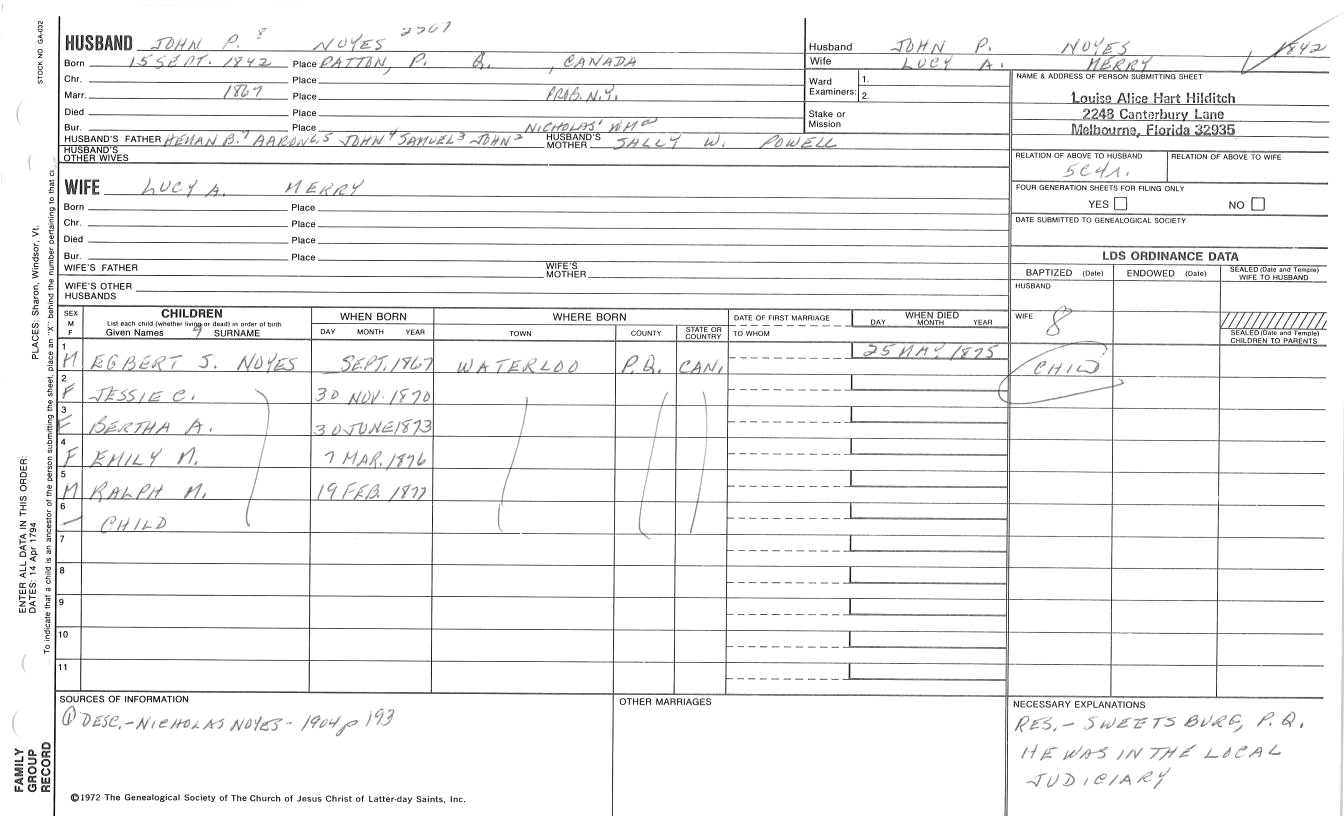 STOCK NO. GA-032
HUSBAND JOHN P. 8 NOYES 2567
Born 15 SEPT. 1842 Place PATTON, P. Q., CANADA
Chr. Place
Marr. 1867 Place PROB. N.Y.
Died Place
Bur. Place
NICHOLAS'
HUSBAND'S FATHER HEMAN B.7 AARON 6,5 JOHN 4 SAMUEL 3 JOHN 2 HUSBAND'S MOTHER SALLY W. POWELL
HUSBAND'S OTHER WIVES
Husband JOHN P. NOYES 1842
Wife LUCY A. MERRY
Ward Examiners: 1. 2.
Stake or Mission
NAME & ADDRESS OF PERSON SUBMITTING SHEET
Louise Alice Hart Hilditch
2248 Canterbury Lane
Melbourne, Florida 32935
RELATION OF ABOVE TO HUSBAND RELATION OF ABOVE TO WIFE
5C4r.
FOUR GENERATION SHEETS FOR FILING ONLY
YES NO
DATE SUBMITTED TO GENEALOGICAL SOCIETY
WIFE LUCY A. MERRY
Born Place
Chr. Place
Died Place
Bur. Place
WIFE'S FATHER WIFE'S MOTHER
WIFE'S OTHER HUSBANDS
LDS ORDINANCE DATA
BAPTIZED (Date) ENDOWED (Date) SEALED (Date and Temple) WIFE TO HUSBAND
HUSBAND
WIFE 8
SEALED (Date and Temple) CHILDREN TO PARENTS
SEX M F
CHILDREN
List each child (whether living or dead) in order of birth
Given Names 9 SURNAME
WHEN BORN
DAY MONTH YEAR
WHERE BORN
TOWN COUNTY STATE OR COUNTRY
DATE OF FIRST MARRIAGE
TO WHOM
WHEN DIED
DAY MONTH YEAR
1 M EGBERT S. NOYES SEPT. 1867 WATERLOO P.Q. CAN. 25 MAY 1875 CHILD
2 F JESSIE C. 30 NOV. 1870
3 F BERTHA A. 30 JUNE 1873
4 F EMILY M. 7 MAR. 1876
5 M RALPH M. 19 FEB. 1877
6 — CHILD
7
8
9
10
11
SOURCES OF INFORMATION
① DESC.-NICHOLAS NOYES - 1904 p 193
OTHER MARRIAGES
NECESSARY EXPLANATIONS
RES. - SWEETSBURG, P.Q.
HE WAS IN THE LOCAL
JUDICIARY
©1972 The Genealogical Society of The Church of Jesus Christ of Latter-day Saints, Inc.
FAMILY GROUP RECORD
ENTER ALL DATA IN THIS ORDER:
DATES: 14 Apr 1794
PLACES: Sharon, Windsor, Vt.
To indicate that a child is an ancestor of the person submitting the sheet, place an "X" behind the number pertaining to that